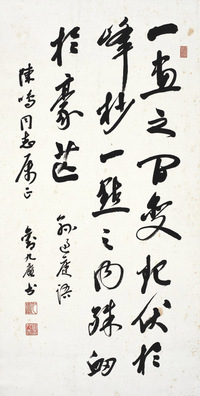 一画之间变起伏于
峰杪一点之内殊衄
於豪芒
孙过庭语
陈鸣同志属正
刘九庵书